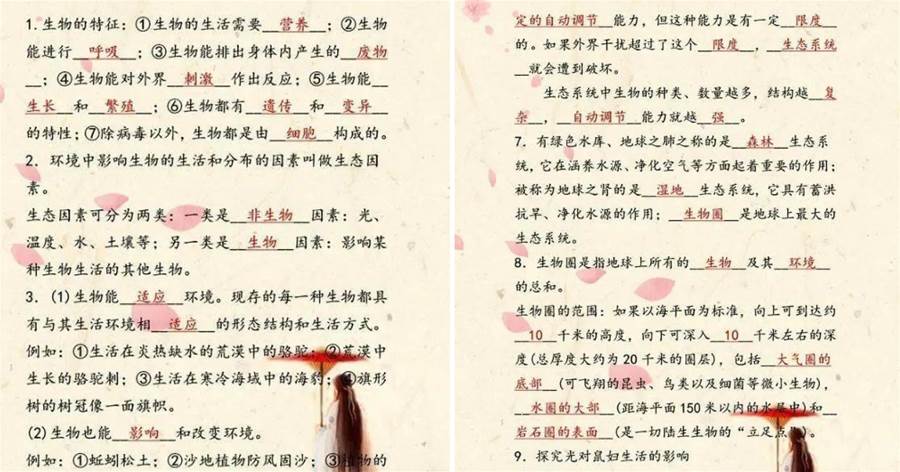 1.生物的特征：①生物的生活需要__营养__；②生物
能进行__呼吸__；③生物能排出身体内产生的__废物
__；④生物能对外界__刺激__作出反应；⑤生物能__
生长__和__繁殖__；⑥生物都有__遗传__和__变异__
的特性；⑦除病毒以外，生物都是由__细胞__构成的。
2．环境中影响生物的生活和分布的因素叫做生态因
素。
生态因素可分为两类：一类是__非生物__因素：光、
温度、水、土壤等；另一类是__生物__因素：影响某
种生物生活的其他生物。
3．(1)生物能__适应__环境。现存的每一种生物都具
有与其生活环境相__适应__的形态结构和生活方式。
例如：①生活在炎热缺水的荒漠中的骆驼；②荒漠中
生长的骆驼刺；③生活在寒冷海域中的海豹；④旗形
树的树冠像一面旗帜。
(2)生物也能__影响__和改变环境。
例如：①蚯蚓松土；②沙地植物防风固沙；③植物的
定的自动调节__能力，但这种能力是有一定__限度__
的。如果外界干扰超过了这个__限度__，__生态系统
__就会遭到破坏。
生态系统中生物的种类、数量越多，结构越__复
杂__，__自动调节__能力就越__强__。
7．有绿色水库、地球之肺之称的是__森林__生态系
统，它在涵养水源、净化空气等方面起着重要的作用；
被称为地球之肾的是__湿地__生态系统，它具有蓄洪
抗旱、净化水源的作用；__生物圈__是地球上最大的
生态系统。
8．生物圈是指地球上所有的__生物__及其__环境__
的总和。
生物圈的范围：如果以海平面为标准，向上可到达约
__10__千米的高度，向下可深入__10__千米左右的深
度(总厚度大约为20千米的圈层)，包括__大气圈的
底部__(可飞翔的昆虫、鸟类以及细菌等微小生物)，
__水圈的大部__(距海平面150米以内的水层中)和__
岩石圈的表面__(是一切陆生生物的“立足点”)。
9．探究光对鼠妇生活的影响